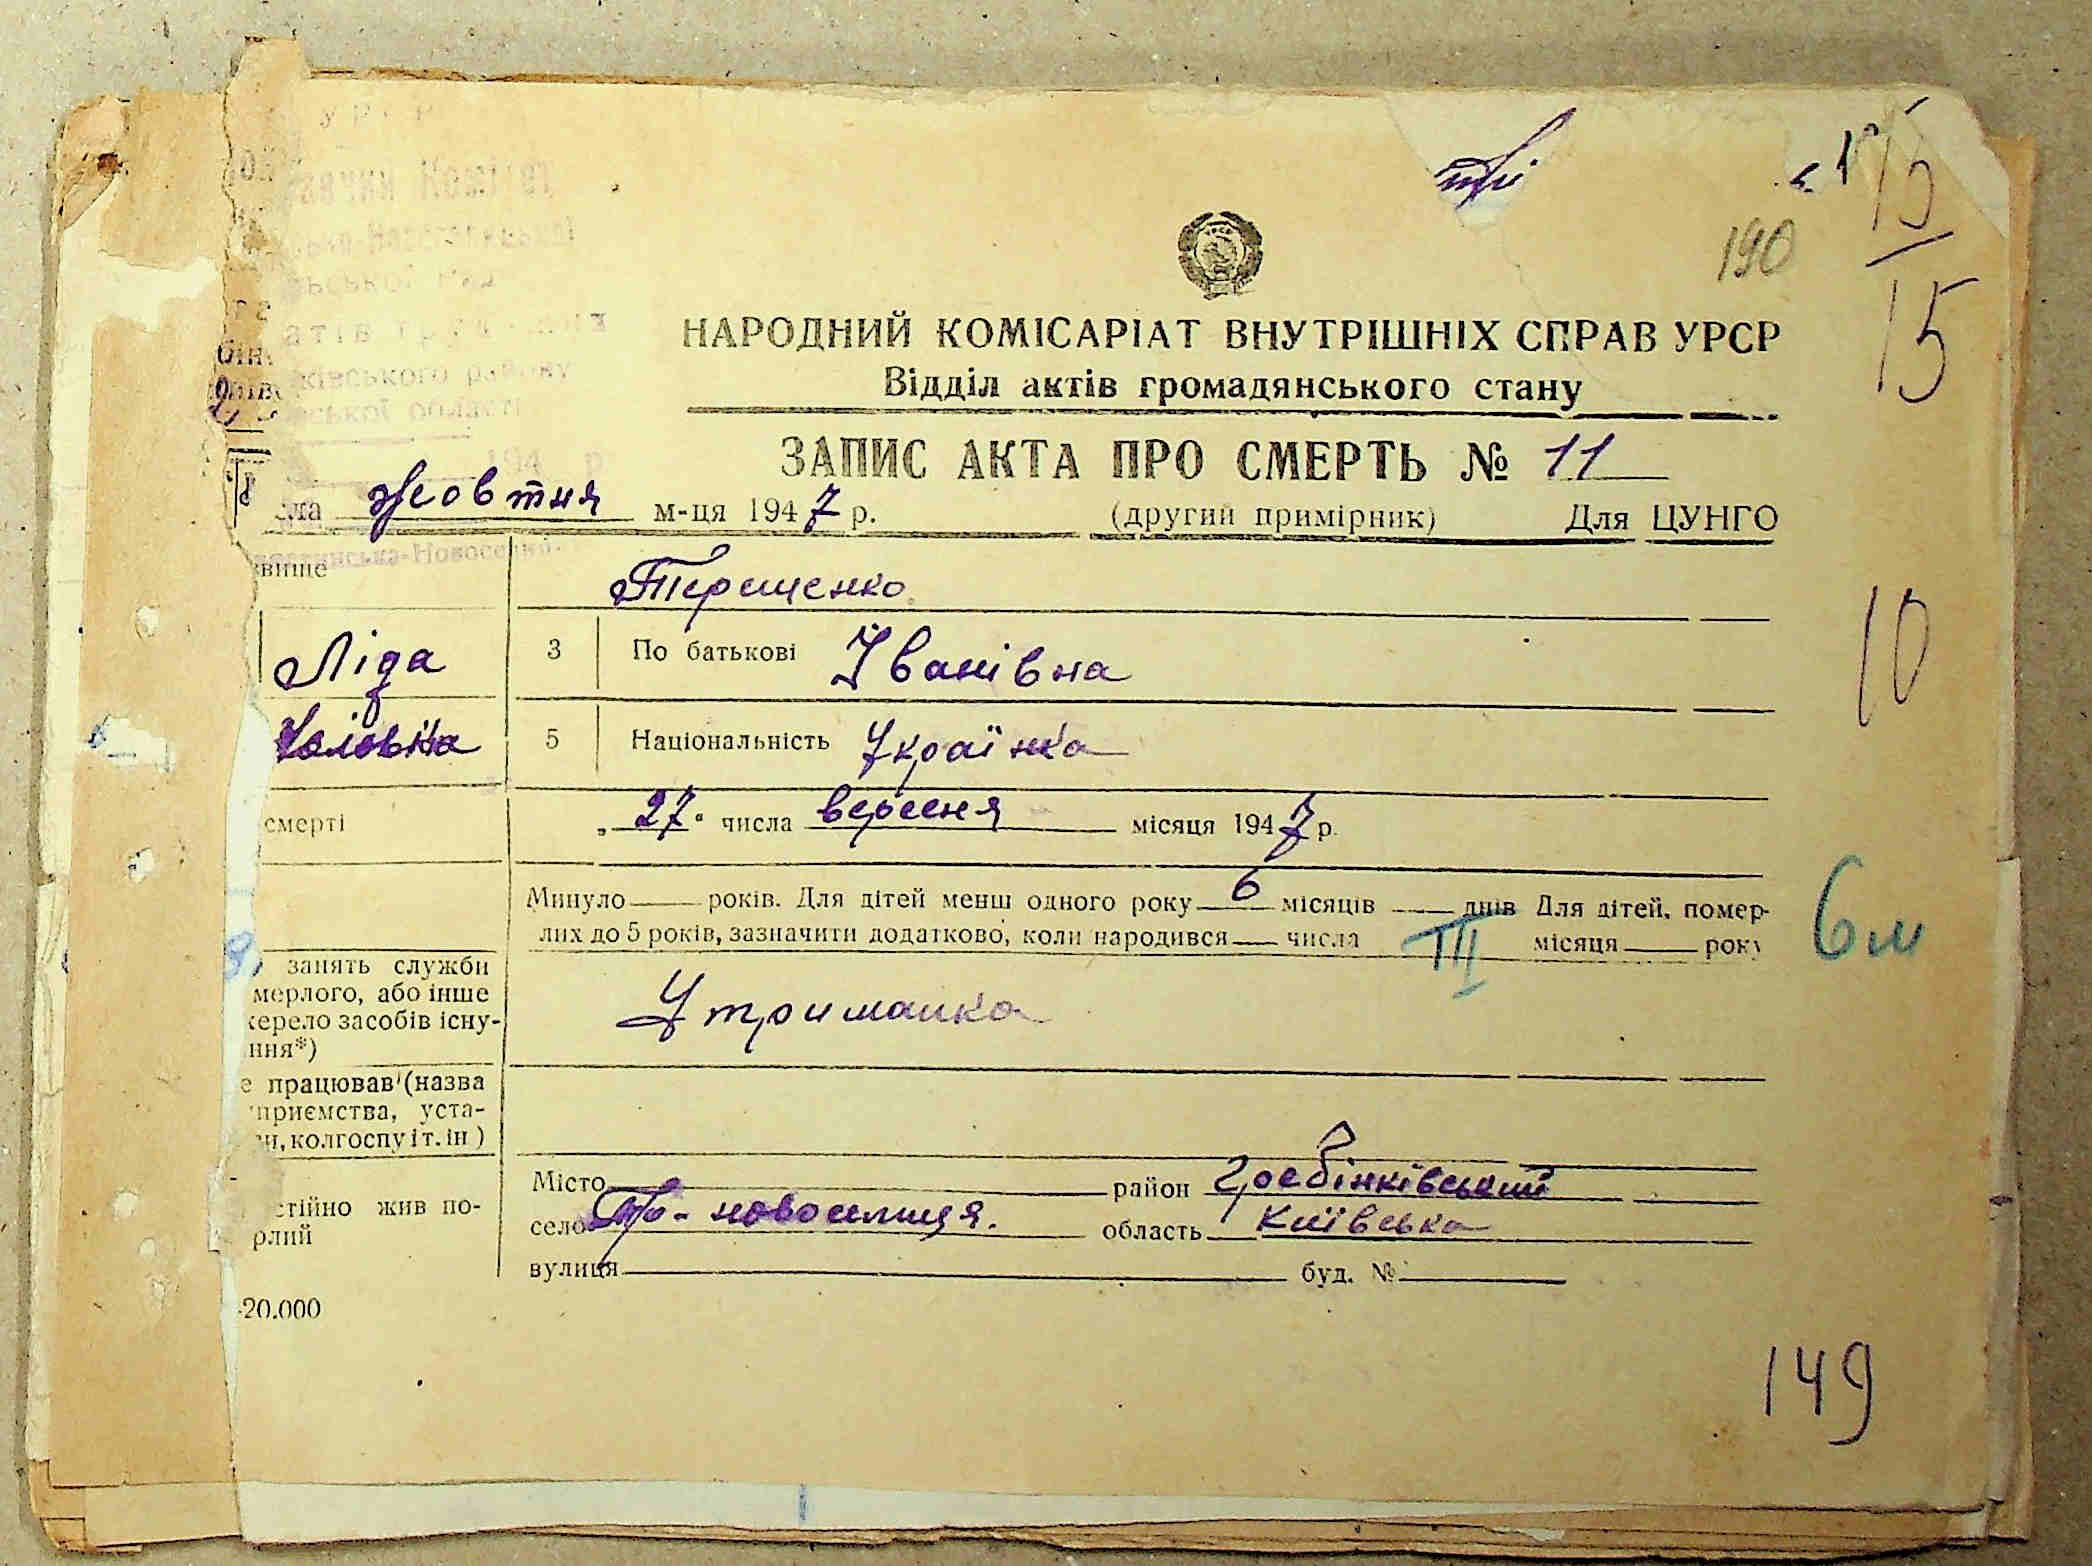 УРСР
авчий Комітет
ської області
194 р
15
15
190
НАРОДНИЙ КОМІСАРІАТ ВНУТРІШНІХ СПРАВ УРСР
Відділ актів громадянського стану
ЗАПИС АКТА ПРО СМЕРТЬ № 11
жовтня м-ця 1947 р. (другий примірник) Для ЦУНГО
звище Терещенко
Ліда 3 По батькові Іванівна
10
5 Національність Українка
смерті „27" числа вересня місяця 1947 р.
Минуло — років. Для дітей менш одного року 6 місяців — днів Для дітей, помер-
лих до 5 років, зазначити додатково, коли народився — числа III місяця — року
6 м
занять служби
мерлого, або інше
керело засобів існу-
ння*) Утриманка
е працював (назва
приємства, уста-
ви, колгоспу і т. ін)
стійно жив по-
рлий
Місто район Гребінківський
село Тр- новоселиця. область Київська
вулиця буд. №
20.000
149